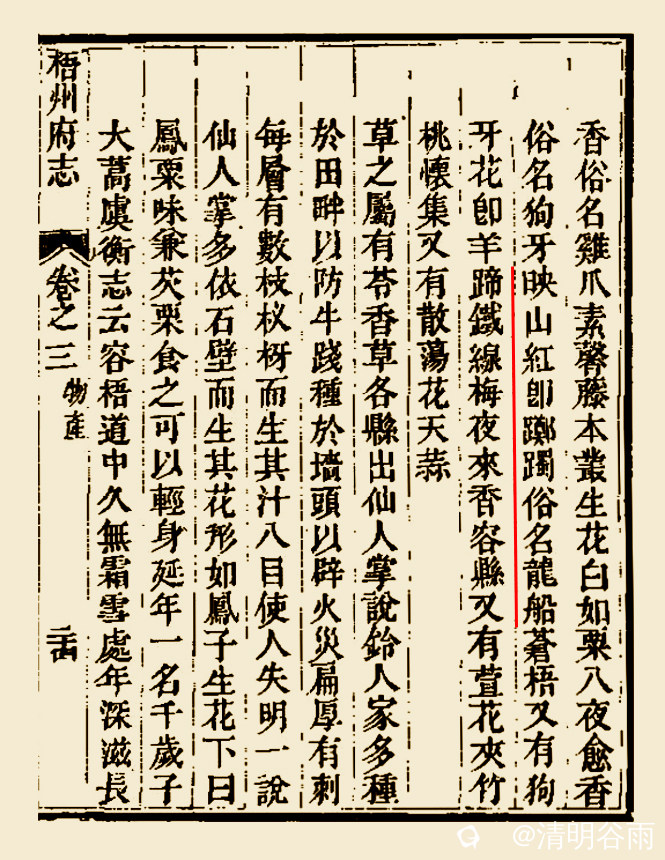 香俗名雞爪素馨藤本叢生花白如粟入夜愈香
俗名狗牙映山紅卽躑躅俗名龍船蒼梧又有狗
牙花卽羊蹄鐵線梅夜來香容縣又有萱花夾竹
桃懷集又有散蕩花天蒜
草之屬有苓香草各縣出仙人掌說鈴人家多種
於田畔以防牛踐種於墻頭以辟火災扁厚有刺
每層有數枝杈枒而生其汁入目使人失明一說
仙人掌多依石壁而生其花形如鳳子生花下曰
鳳粟味兼芡栗食之可以輕身延年一名千歲子
大蒿虞衡志云容梧道中久無霜雪處年深滋長
梧州府志 卷之三 物產 二十四
@清明谷雨